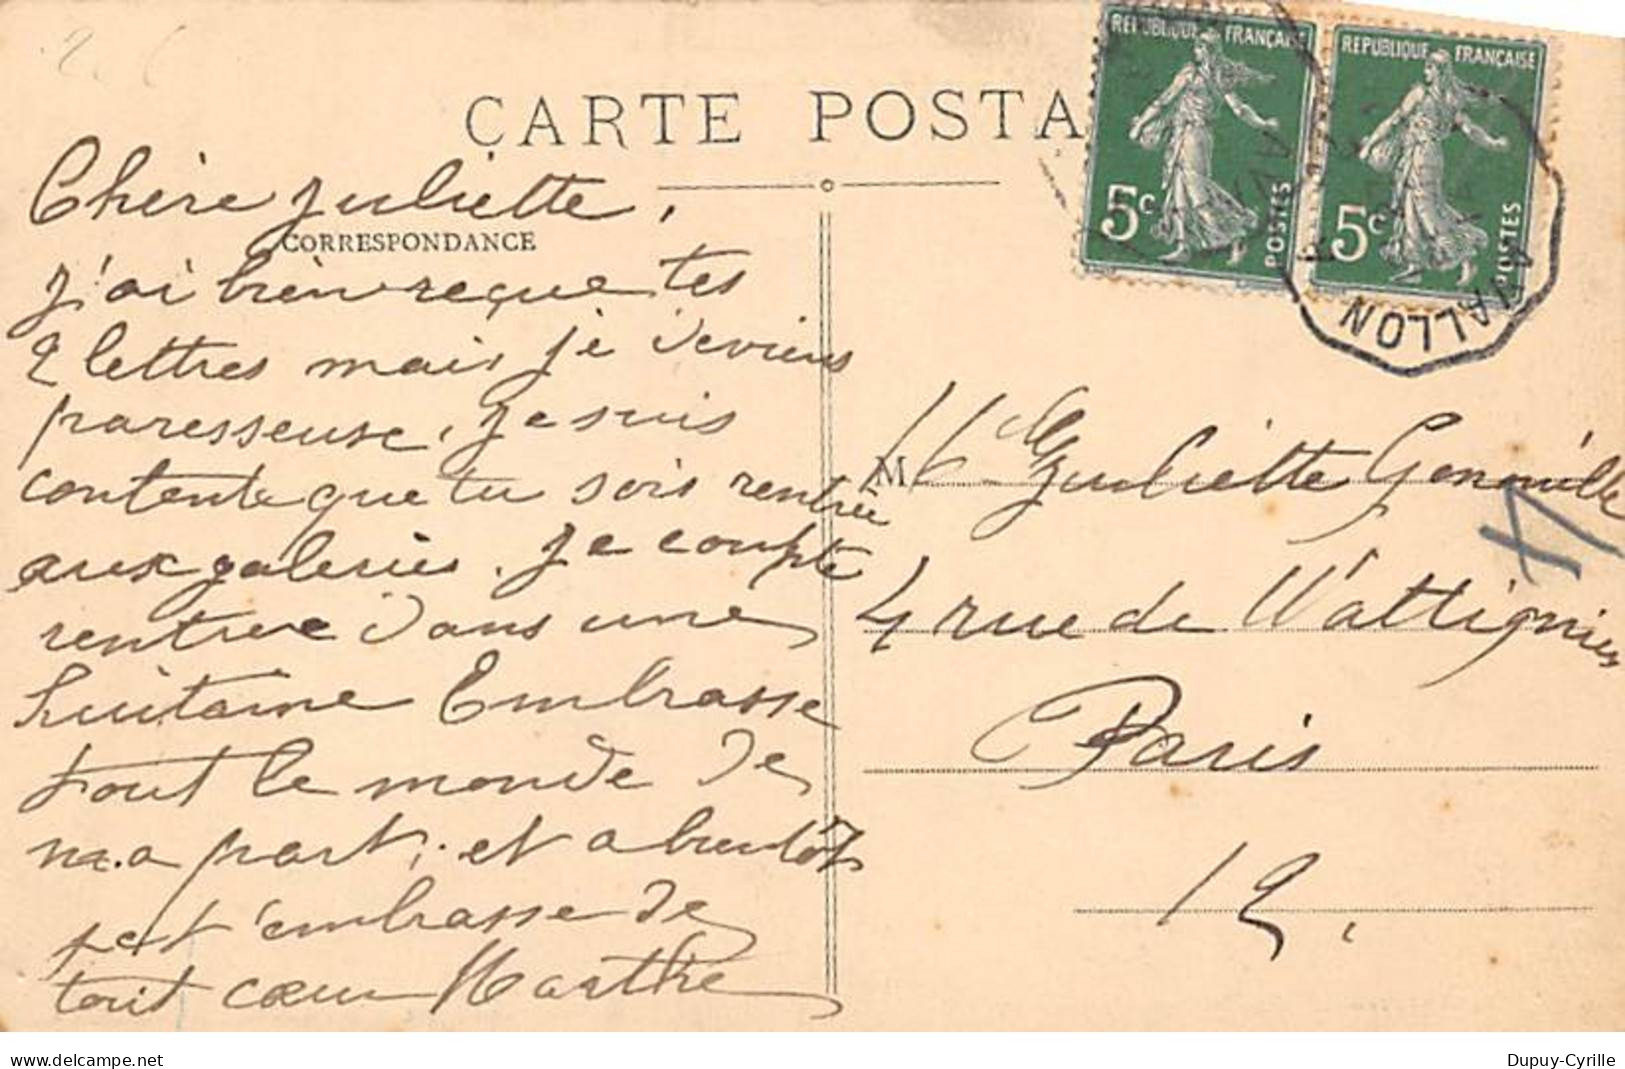 CARTE POSTA
REPUBLIQUE FRANÇAISE
5c
POSTES
REPUBLIQUE FRANÇAISE
5c
POSTES
AVALLON
CORRESPONDANCE
Chère Juliette,
j'ai bien reçue tes
2 lettres mais je deviens
paresseuse, je suis
contente que tu sois rentrée
aux galeries. Je compte
rentrée dans une
huitaine Embrasse
tout le monde de
ma part, et a bientôt
je t'embrasse de
tout cœur Marthe
M Mlle Juliette Genouille
4 rue de Wattignies
Paris
12.
www.delcampe.net
Dupuy-Cyrille